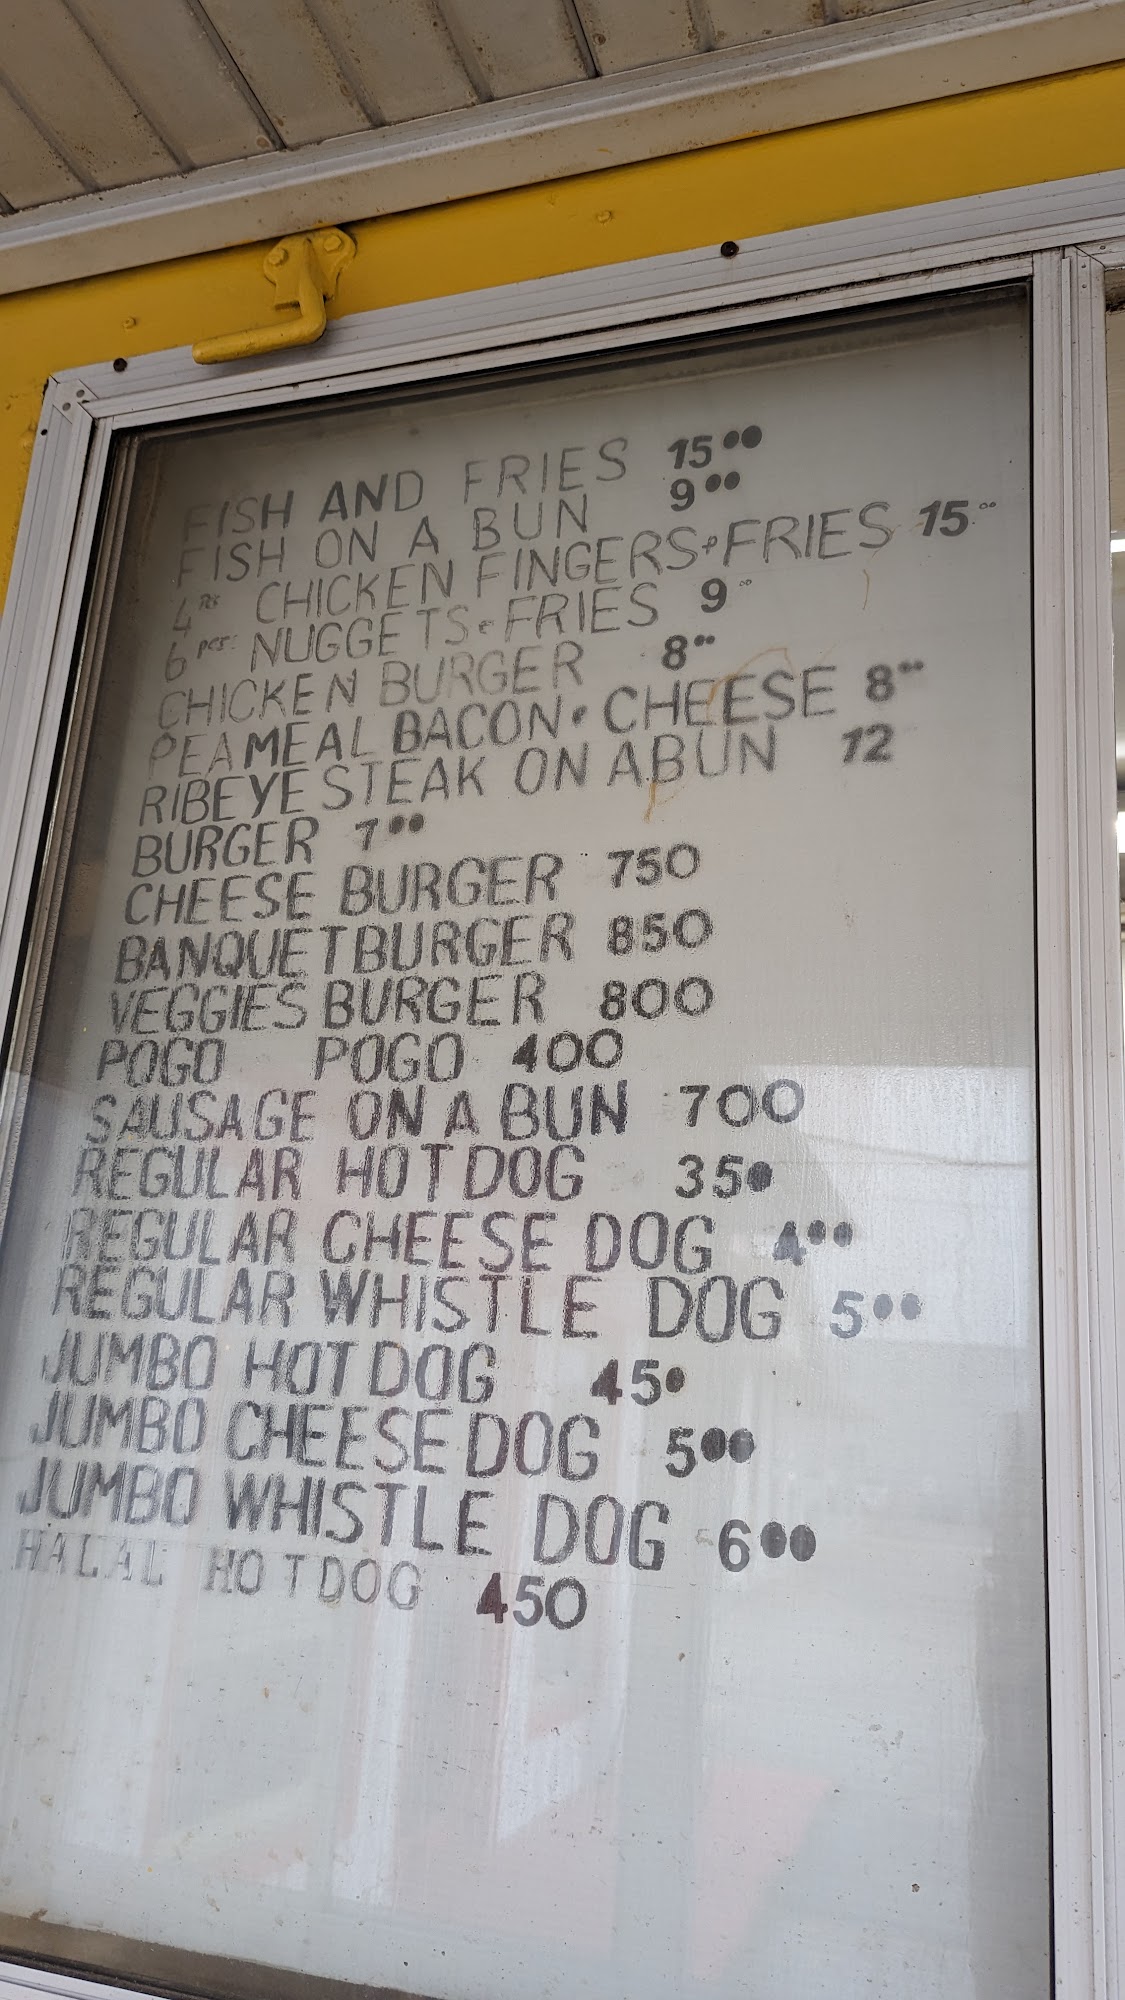 FISH AND FRIES 15⁰⁰
FISH ON A BUN 9⁰⁰
4 pcs CHICKEN FINGERS & FRIES 15⁰⁰
6 pcs. NUGGETS & FRIES 9⁰⁰
CHICKEN BURGER 8⁰⁰
PEAMEAL BACON & CHEESE 8⁰⁰
RIBEYE STEAK ON A BUN 12
BURGER 7⁰⁰
CHEESE BURGER 750
BANQUET BURGER 850
VEGGIES BURGER 800
POGO POGO 400
SAUSAGE ON A BUN 700
REGULAR HOT DOG 350
REGULAR CHEESE DOG 4⁰⁰
REGULAR WHISTLE DOG 5⁰⁰
JUMBO HOT DOG 450
JUMBO CHEESE DOG 5⁰⁰
JUMBO WHISTLE DOG 6⁰⁰
HALAL HOT DOG 450